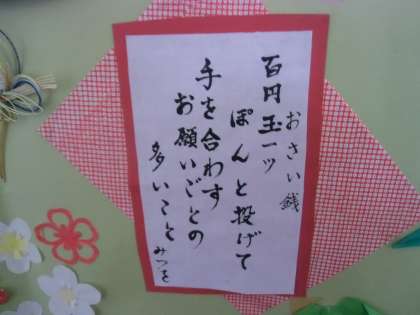 おさい銭
百円玉一ッ
ぽんと投げて
手を合わす
お願いごとの
多いこと
みつを